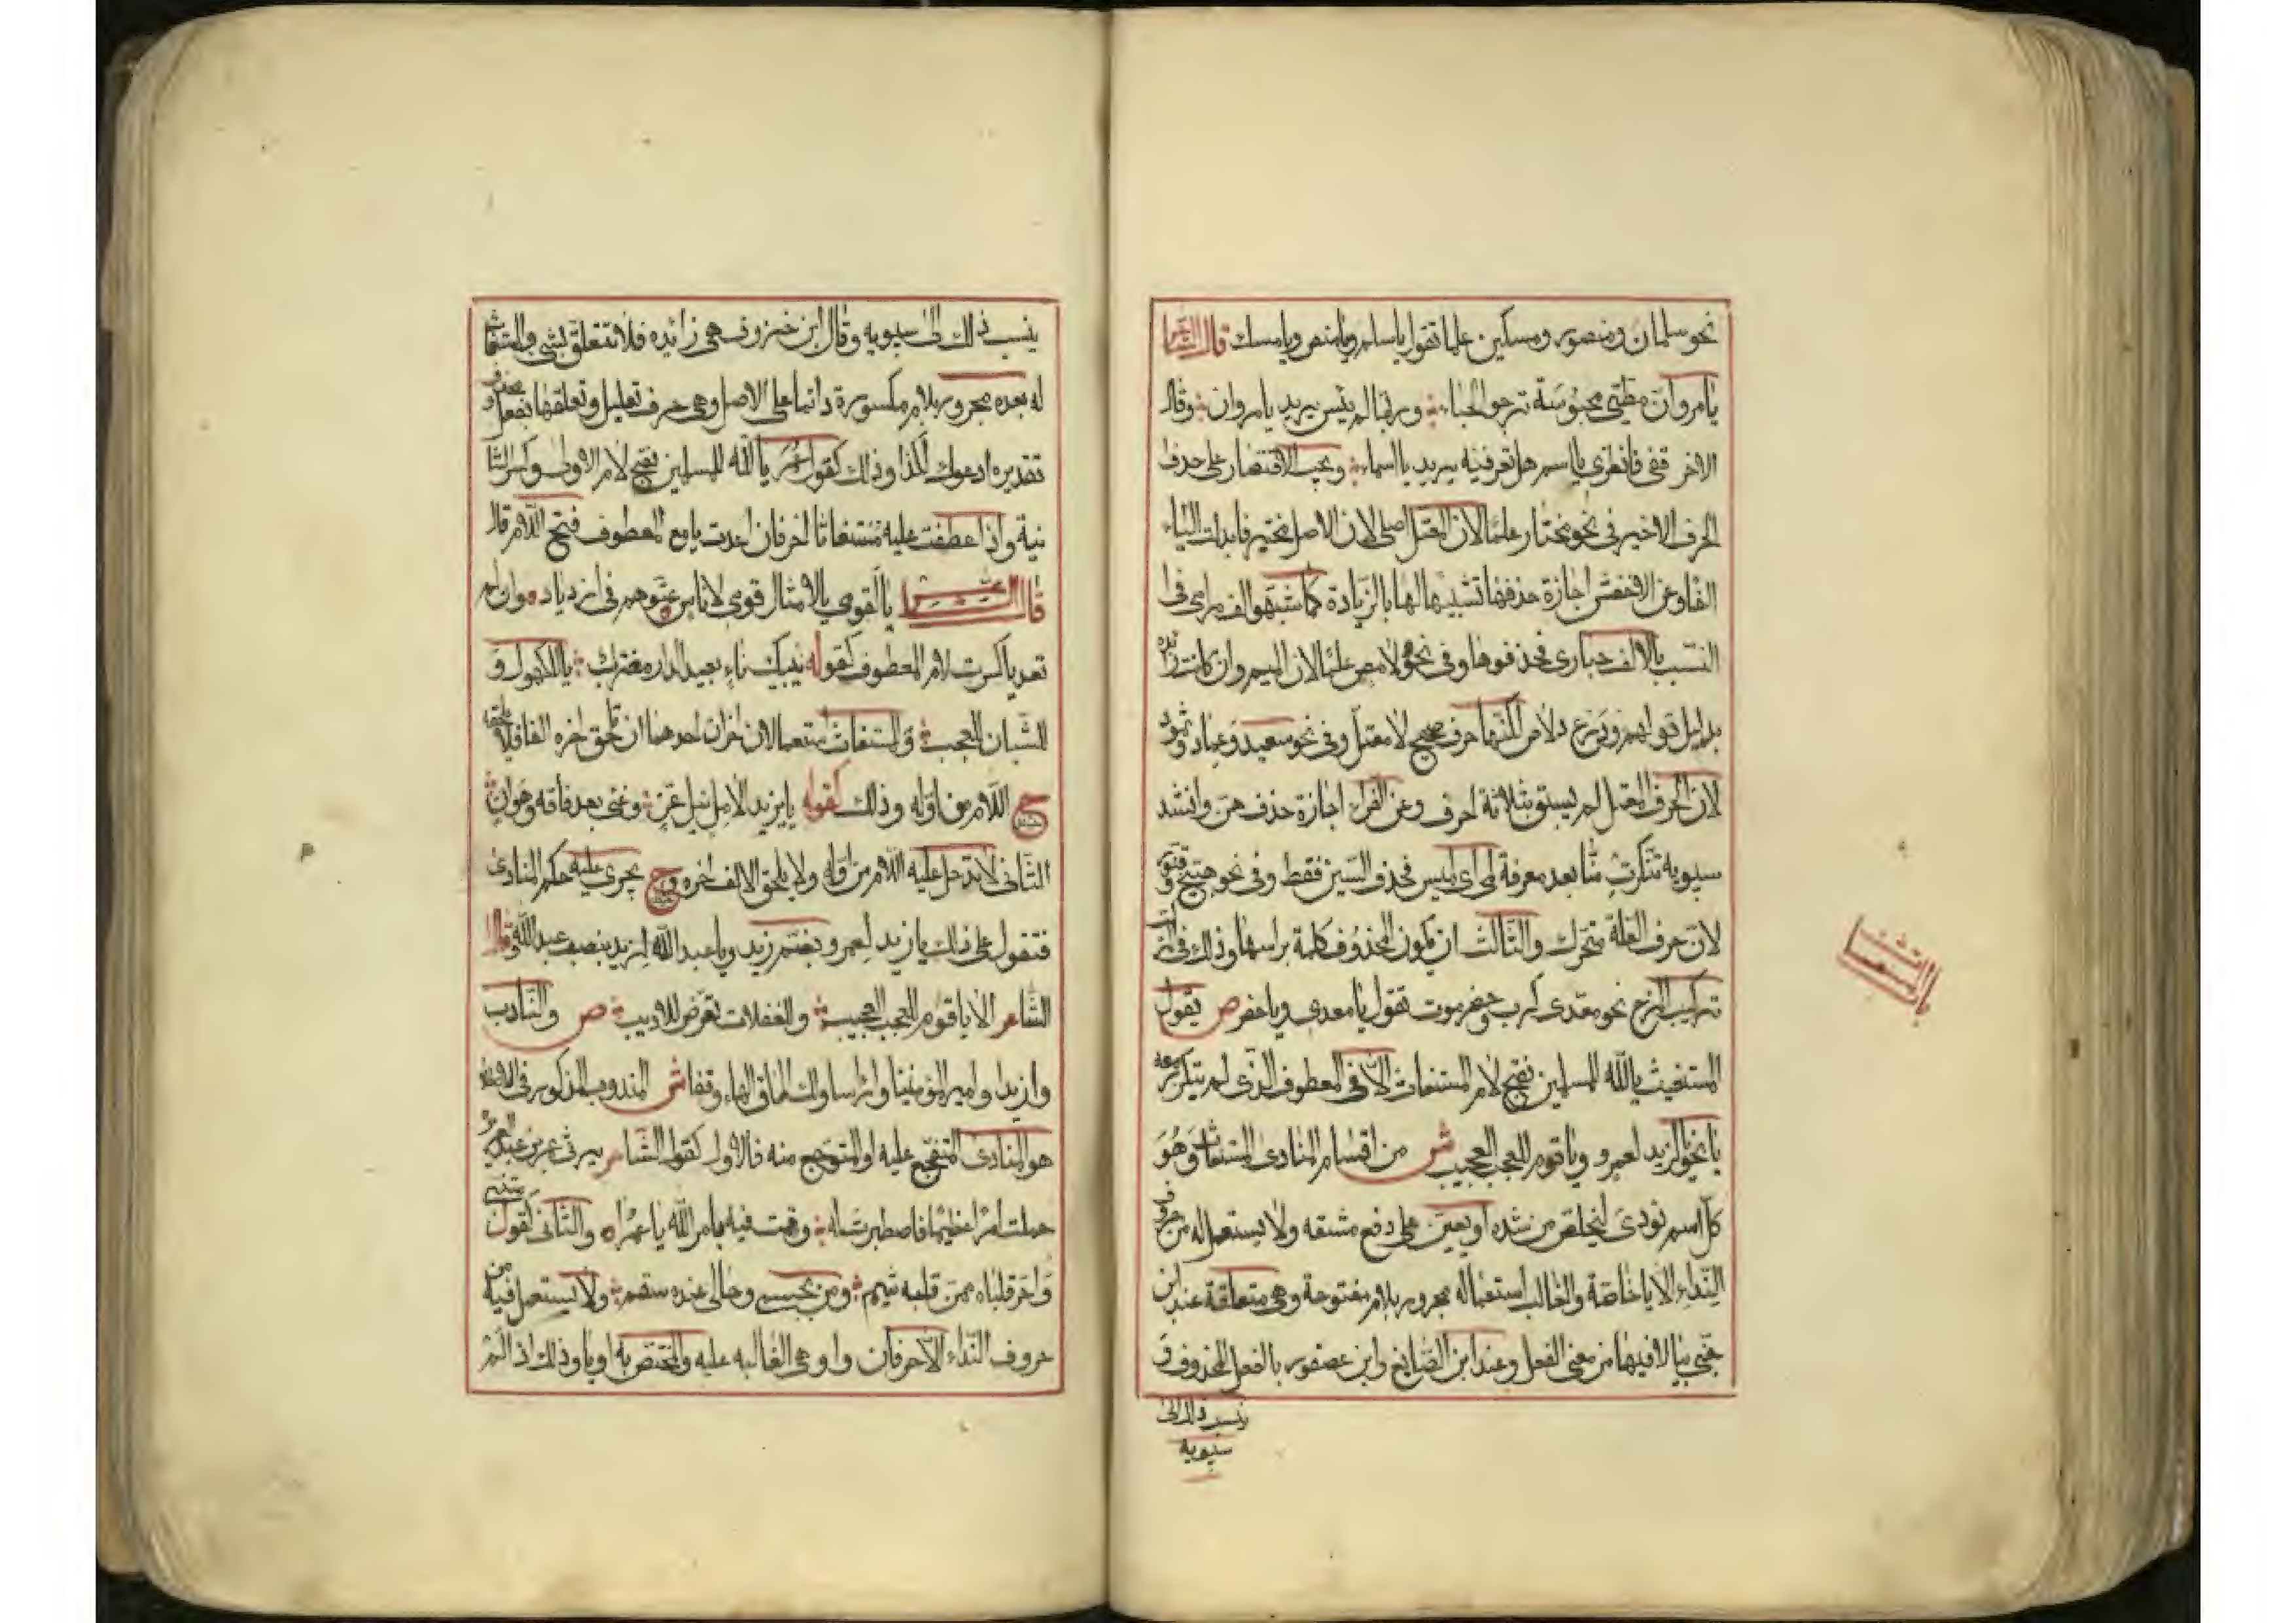 نحو سلمان ومنصور ومسكين علما تقول ياسلم ويامنص ويامسك قال الشاعر
يامروان مطيتي محبوسة ترجو الحباء وربها لم ييئس يريد يامروان وقال
الاخر قفى فانظرى يا اسم هل تعرفينه يريد يا اسماء ويجب الاقتصار على حذف
الحرف الاخير فى نحو مختار علما لان المعتل اصلى لان الاصل مختير فابدلت الياء
الفا وعن الاخفش اجازة حذفها تشبيها لها بالزيادة كما شبهوا الف مرامى فى
النسب بالالف حبارى فحذفوها وفى نحو دلامص علما لان الميم وان كانت زائده
بدليل قولهم درع دلاص لكنها حرف صحيح لا معتل وفى نحو سعيد وعماد وثمود
لان الحرف المعتل لم يسبق بثلاثة احرف وعن الفراء اجازة حذفهن وانشد
سيبويه تنكرت منا بعد معرفة لمى اى لميس فحذف السين فقط وفى نحو هبيخ وقنور
لان حرف العلة متحرك والثالث ان يكون المحذوف كلمة براسها وذلك فى
تركيب المزج نحو معدى كرب وحضرموت تقول يا معدى ويا حضر ص يقول
المستغيث يا لله للمسلمين بفتح لام المستغاث الا فى المعطوف الذى لم يتكرر معه
يا نحو يا لزيد لعمرو ويا قوم للعجب العجيب ش من اقسام المنادى المستغاث وهو
كل اسم نودى ليخلص من شده او يعين على دفع مشقه ولا يستعمل له من حروف
النداء الا يا خاصة والغالب استعماله مجرور بلام مفتوحة وهى متعلقة عند ابن
جنى بيا لما فيها من معنى الفعل وعند ابن الضايع وابن عصفور بالفعل المحذوف و
ينسب ذلك الى
سيبويه
المستغاث
ينسب ذلك الى سيبويه وقال ابن خروف هى زائده فلا تتعلق بشى والمستغاث
له بعده مجرور بلام مكسورة دائما على الاصل وهى حرف تعليل وتعلقها بفعل محذوف
تقديره ادعوك لكذا وذلك كقول عمر يا لله للمسلمين بفتح لام الاولى وكسر الثا
نية واذا عطفت عليه مستغاثا اخر فان اعدت يا مع المعطوف فتح اللام قال
قال الشاعر يا لقومى يا لامثال قومى لاناس عتوهم فى ازدياد وان لم
تعد يا كسرت لام المعطوف كقوله يبكيك ناء بعيد الدار مغترب يا للكهول و
للشبان للعجب وللمستغاث استعمالان اخران احدهما ان تلحق اخره الفا فلا تلحقه
ح اللام من اوله وذلك كقوله يا يزيدا لامل نيل عز وغنى بعد فاقه وهوان
الثانى لا تدخل عليه اللام من اوله ولا يلحق الالف اخره وح يجرى عليه حكم المنادى
فتقول على ذلك يا زيد لعمرو بضم زيد ويا عبد الله لزيد بنصب عبد الله قال
الشاعر الا يا قوم للعجب العجيب وللغفلات تعرض للاديب ص والنادب
وا زيدا وا امير المومنينا وا راسا ولك الحاق الهاء وقفا ش المندوب المذكور فى
هو المنادى المتفجع عليه او المتوجع منه فالاول كقول الشاعر يرثى عمر بن عبد العزيز
حملت امرا عظيما فاصطبرت له وقمت فيه بامر الله يا عمراه والثانى كقول متنبى
وا حر قلباه ممن قلبه شبم ومن بجسمى وحالى عنده سقم ولا يستعمل فيه من
حروف النداء الا حرفان وا وهى الغالبه عليه والمختص به او يا وذلك اذا لم